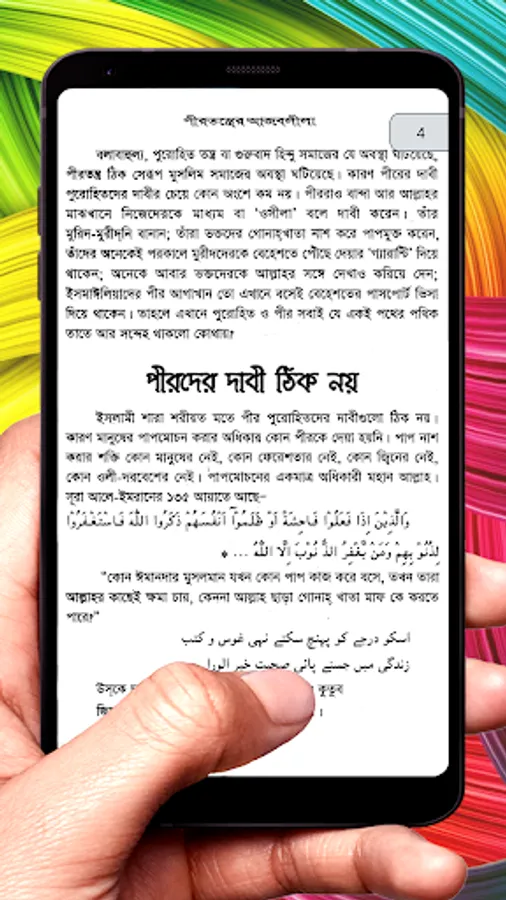 পীরতন্ত্রের আজবলীলা
4
বলাবাহুল্য, পুরোহিত তন্ত্র বা গুরুবাদ হিন্দু সমাজের যে অবস্থা ঘটিয়েছে,
পীরতন্ত্র ঠিক সেরূপ মুসলিম সমাজের অবস্থা ঘটিয়েছে। কারণ পীরের দাবী
পুরোহিতদের দাবীর চেয়ে কোন অংশে কম নয়। পীররাও বান্দা আর আল্লাহর
মাঝখানে নিজেদেরকে মাধ্যম বা ‘ওসীলা’ বলে দাবী করেন। তাঁর
মুরিদ-মুরীদ্‌নি বানান; তাঁরা ভক্তদের গোনাহ্‌খাতা নাশ করে পাপমুক্ত করেন,
তাঁদের অনেকেই পরকালে মুরীদদেরকে বেহেশতে পৌঁছে দেয়ার ‘গ্যারান্টি’ দিয়ে
থাকেন; অনেকে আবার ভক্তদেরকে আল্লাহর সঙ্গে দেখাও করিয়ে দেন;
ইসমাঈলিয়াদের পীর আগাখান তো এখানে বসেই বেহেশতের পাসপোর্ট ভিসা
দিয়ে থাকেন। তাহলে এখানে পুরোহিত ও পীর সবাই যে একই পথের পথিক
তাতে আর সন্দেহ থাকলো কোথায়?
পীরদের দাবী ঠিক নয়
ইসলামী শারা শরীয়ত মতে পীর পুরোহিতদের দাবীগুলো ঠিক নয়।
কারণ মানুষের পাপমোচন করার অধিকার কোন পীরকে দেয়া হয়নি। পাপ নাশ
করার শক্তি কোন মানুষের নেই, কোন ফেরেশতার নেই, কোন জ্বিনের নেই,
কোন ওলী-দরবেশের নেই। পাপমোচনের একমাত্র অধিকারী মহান আল্লাহ।
সূরা আলে-ইমরানের ১৩৫ আয়াতে আছে–
وَالَّذِيْنَ اِذَا فَعَلُوْا فَاحِشَةً اَوْ ظَلَمُوْٓا اَنْفُسَهُمْ ذَكَرُوا اللّٰهَ فَاسْتَغْفَرُوْا
لِذُنُوْبِهِمْ وَمَنْ يَّغْفِرُ الذُّنُوْبَ اِلَّا اللّٰهُ ... *
"কোন ঈমানদার মুসলমান যখন কোন পাপ কাজ করে বসে, তখন তারা
আল্লাহর কাছেই ক্ষমা চায়, কেননা আল্লাহ ছাড়া গোনাহ্ খাতা মাফ কে করতে
পারে?"
اسکو درجے کو پہنچ سکتے نہی غوس و کتب
زندگی میں جسنے پائی صحبت خیر الورا
উস্‌কে কুতুব